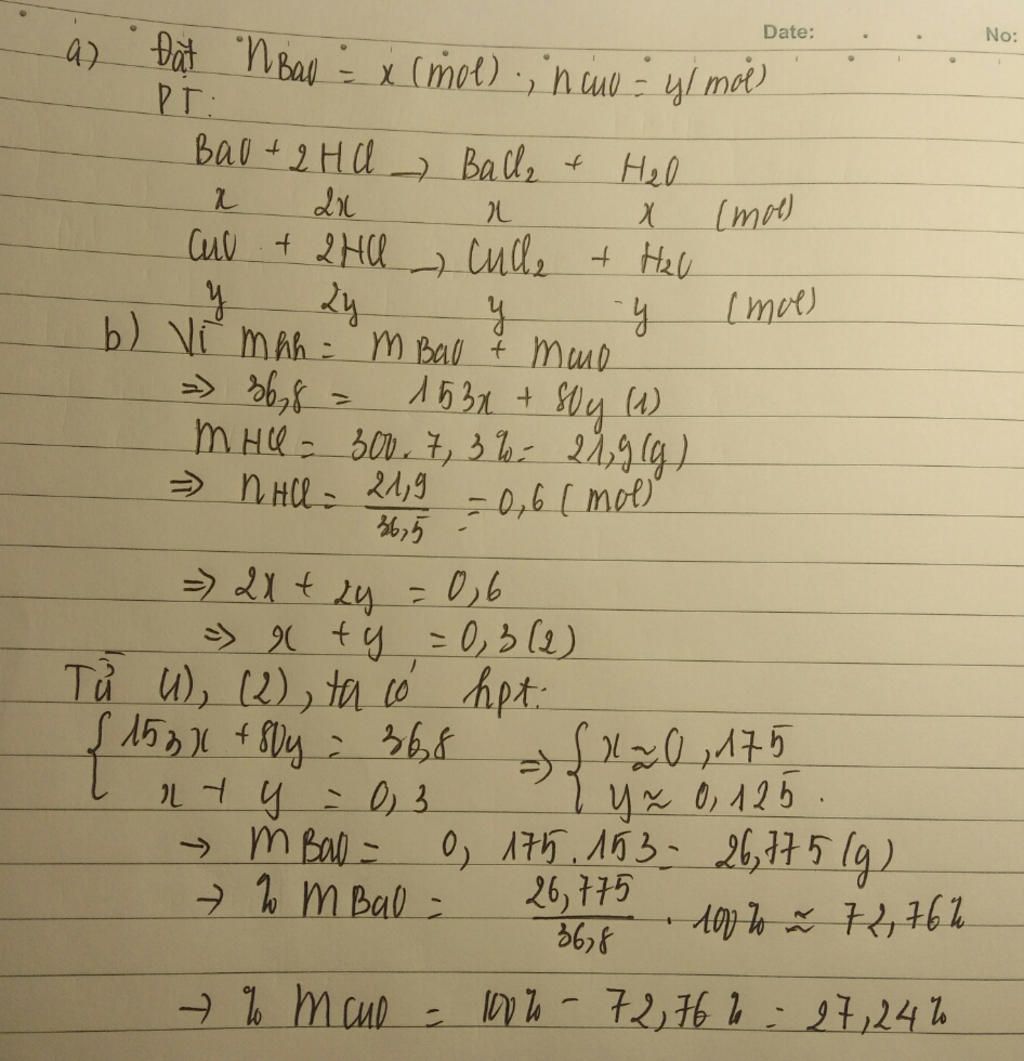 Date: No:
a) Đặt nBaO = x (mol) ; nCuO = y (mol)
PT:
BaO + 2HCl → BaCl2 + H2O
x 2x x x (mol)
CuO + 2HCl → CuCl2 + H2O
y 2y y y (mol)
b) Vì mhh = mBaO + mCuO
=> 36,8 = 153x + 80y (1)
mHCl = 300. 7,3% = 21,9 (g)
=> nHCl = 21,9/36,5 = 0,6 (mol)
=> 2x + 2y = 0,6
=> x + y = 0,3 (2)
Từ (1), (2), ta có hpt:
{ 153x + 80y = 36,8 => { x ≈ 0,175
x + y = 0,3 y ≈ 0,125.
→ mBaO = 0,175.153 = 26,775 (g)
→ % mBaO = 26,775/36,8 . 100% ≈ 72,76%
→ % mCuO = 100% - 72,76% = 27,24%